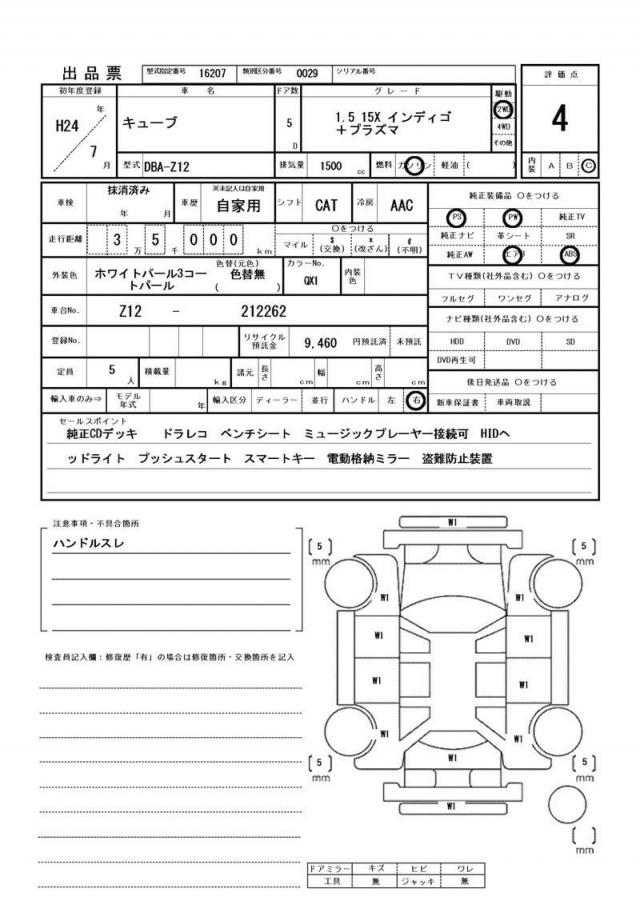 出品票 型式指定番号 16207 類別区分番号 0029 シリアル番号
初年度登録 車名 ドア数 グレード 駆動 評価点
H24 年 7 月 キューブ 5 D 1.5 15X インディゴ
+プラズマ
2WD
4WD
その他
4
型式 DBA-Z12 排気量 1500 cc 燃料 ガソリン 軽油 ( ) 内装 A B C
車検 抹消済み 年 月 車歴 ※未記入は自家用 自家用 シフト CAT 冷房 AAC
走行距離 3 万 5 千 0 0 0 km
○をつける
マイル $ (交換) x (改ざん) # (不明)
外装色 ホワイトパール3コー
トパール
色替(元色)
色替無
( )
カラーNo.
QX1
内装色
車台No. Z12 - 212262
登録No. リサイクル
預託金 9,460 円預託済 未預託
定員 5 人 積載量 kg 諸元 長さ cm 幅 cm 高さ cm
輸入車のみ⇒ モデル
年式 年 輸入区分 ディーラー 並行 ハンドル 左 右
純正装備品 ○をつける
PS PW 純正TV
純正ナビ 革シート SR
純正AW エアB ABS
TV種類(社外品含む) ○をつける
フルセグ ワンセグ アナログ
ナビ種類(社外品含む) ○をつける
HDD DVD SD
DVD再生可
後日発送品 ○をつける
新車保証書 車両取説
セールスポイント
純正CDデッキ ドラレコ ベンチシート ミュージックプレーヤー接続可 HIDヘ
ッドライト プッシュスタート スマートキー 電動格納ミラー 盗難防止装置
注意事項・不具合箇所
ハンドルスレ
検査員記入欄:修復歴「有」の場合は修復箇所・交換箇所を記入
W1
[5] [5]
mm mm
W1 W1
W1 W1
W1 W1
W1 W1
W1
[5] [5]
mm mm
W1
[ ]
mm
ドアミラー キズ ヒビ ワレ
工具 無 ジャッキ 無